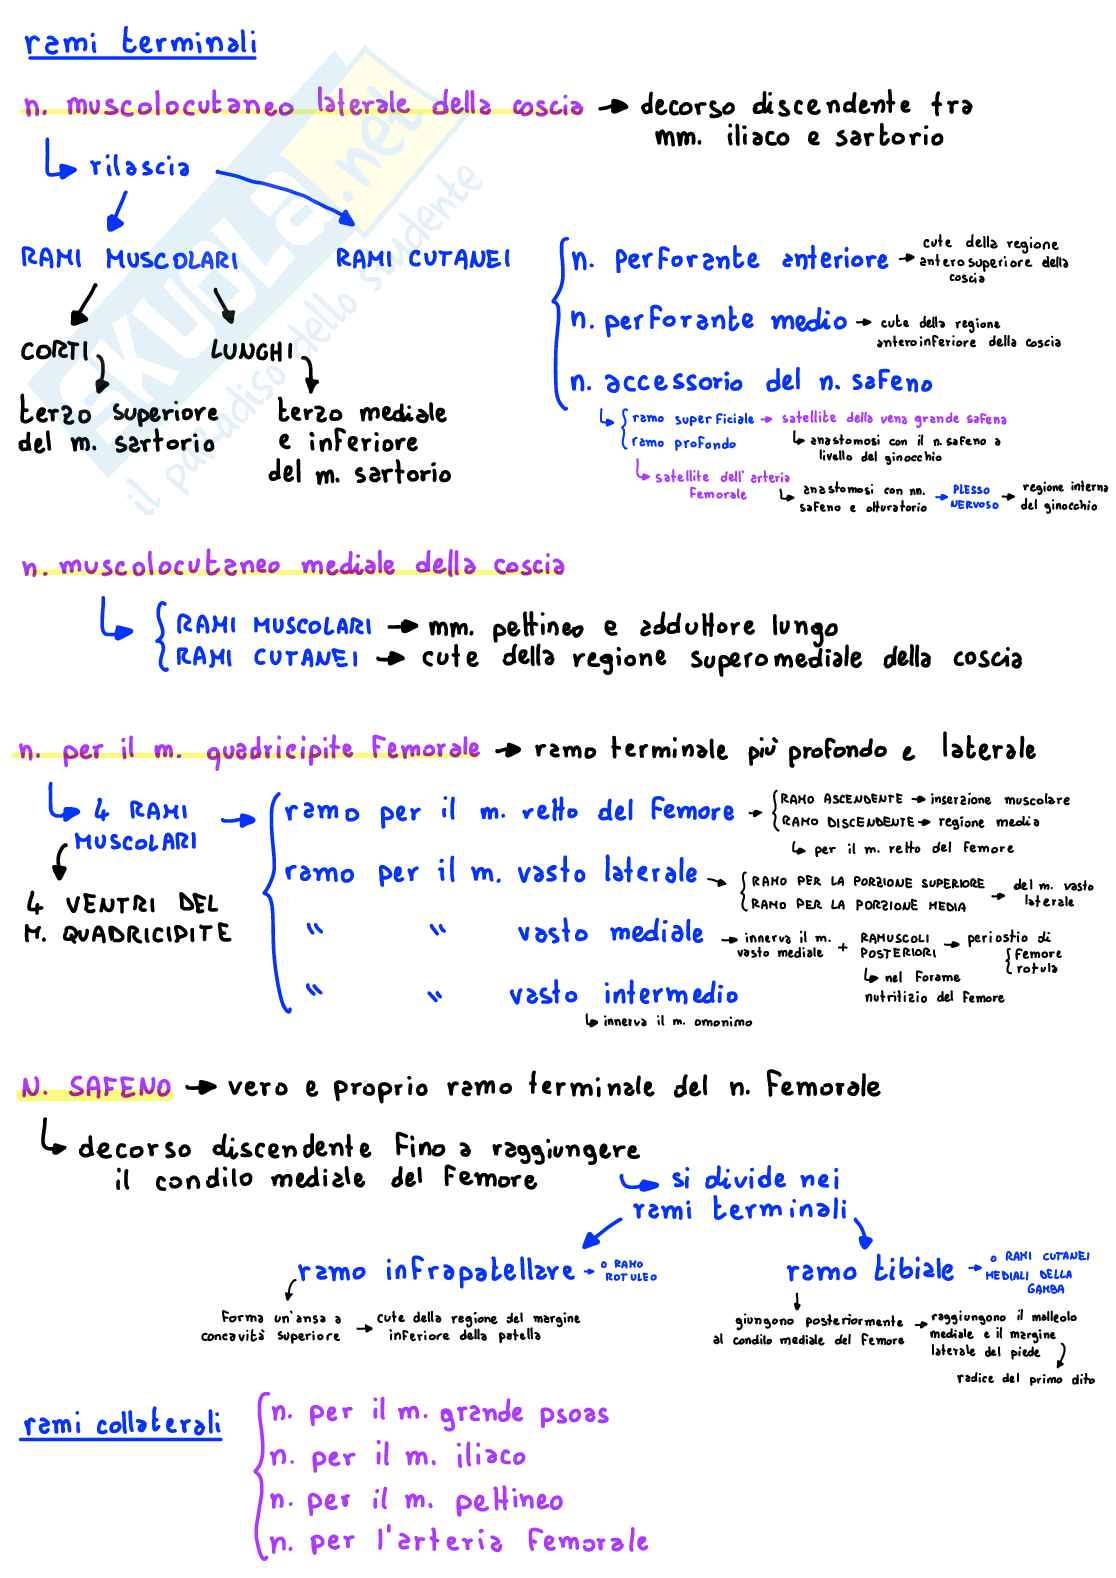 rami terminali
n. muscolocutaneo laterale della coscia → decorso discendente tra
mm. iliaco e sartorio
↳ rilascia
RAMI MUSCOLARI
RAMI CUTANEI
CORTI
LUNGHI
terzo superiore
del m. sartorio
terzo mediale
e inferiore
del m. sartorio
n. perforante anteriore → cute della regione
anterosuperiore della
coscia
n. perforante medio → cute della regione
anteroinferiore della coscia
n. accessorio del n. safeno
ramo superficiale → satellite della vena grande safena
↳ anastomosi con il n. safeno a
livello del ginocchio
ramo profondo
↳ satellite dell'arteria
femorale
↳ anastomosi con nn.
safeno e otturatorio → PLESSO
NERVOSO → regione interna
del ginocchio
SKUOLA.net
il paradiso dello studente
n. muscolocutaneo mediale della coscia
RAMI MUSCOLARI → mm. pettineo e adduttore lungo
RAMI CUTANEI → cute della regione superomediale della coscia
n. per il m. quadricipite femorale → ramo terminale più profondo e laterale
↳ 4 RAMI
MUSCOLARI
4 VENTRI DEL
M. QUADRICIPITE
ramo per il m. retto del femore →
RAMO ASCENDENTE → inserzione muscolare
RAMO DISCENDENTE → regione media
↳ per il m. retto del femore
ramo per il m. vasto laterale →
RAMO PER LA PORZIONE SUPERIORE
RAMO PER LA PORZIONE MEDIA
→ del m. vasto
laterale
" " vasto mediale → innerva il m.
vasto mediale + RAMUSCOLI
POSTERIORI → periostio di
femore
rotula
↳ nel forame
nutritizio del femore
" " vasto intermedio
↳ innerva il m. omonimo
N. SAFENO → vero e proprio ramo terminale del n. femorale
↳ decorso discendente fino a raggiungere
il condilo mediale del femore
↳ si divide nei
rami terminali
ramo infrapatellare → o RAMO
ROTULEO
forma un'ansa a
concavità superiore → cute della regione del margine
inferiore della patella
ramo tibiale → o RAMI CUTANEI
MEDIALI DELLA
GAMBA
giungono posteriormente
al condilo mediale del femore → raggiungono il malleolo
mediale e il margine
laterale del piede
radice del primo dito
rami collaterali
n. per il m. grande psoas
n. per il m. iliaco
n. per il m. pettineo
n. per l'arteria femorale